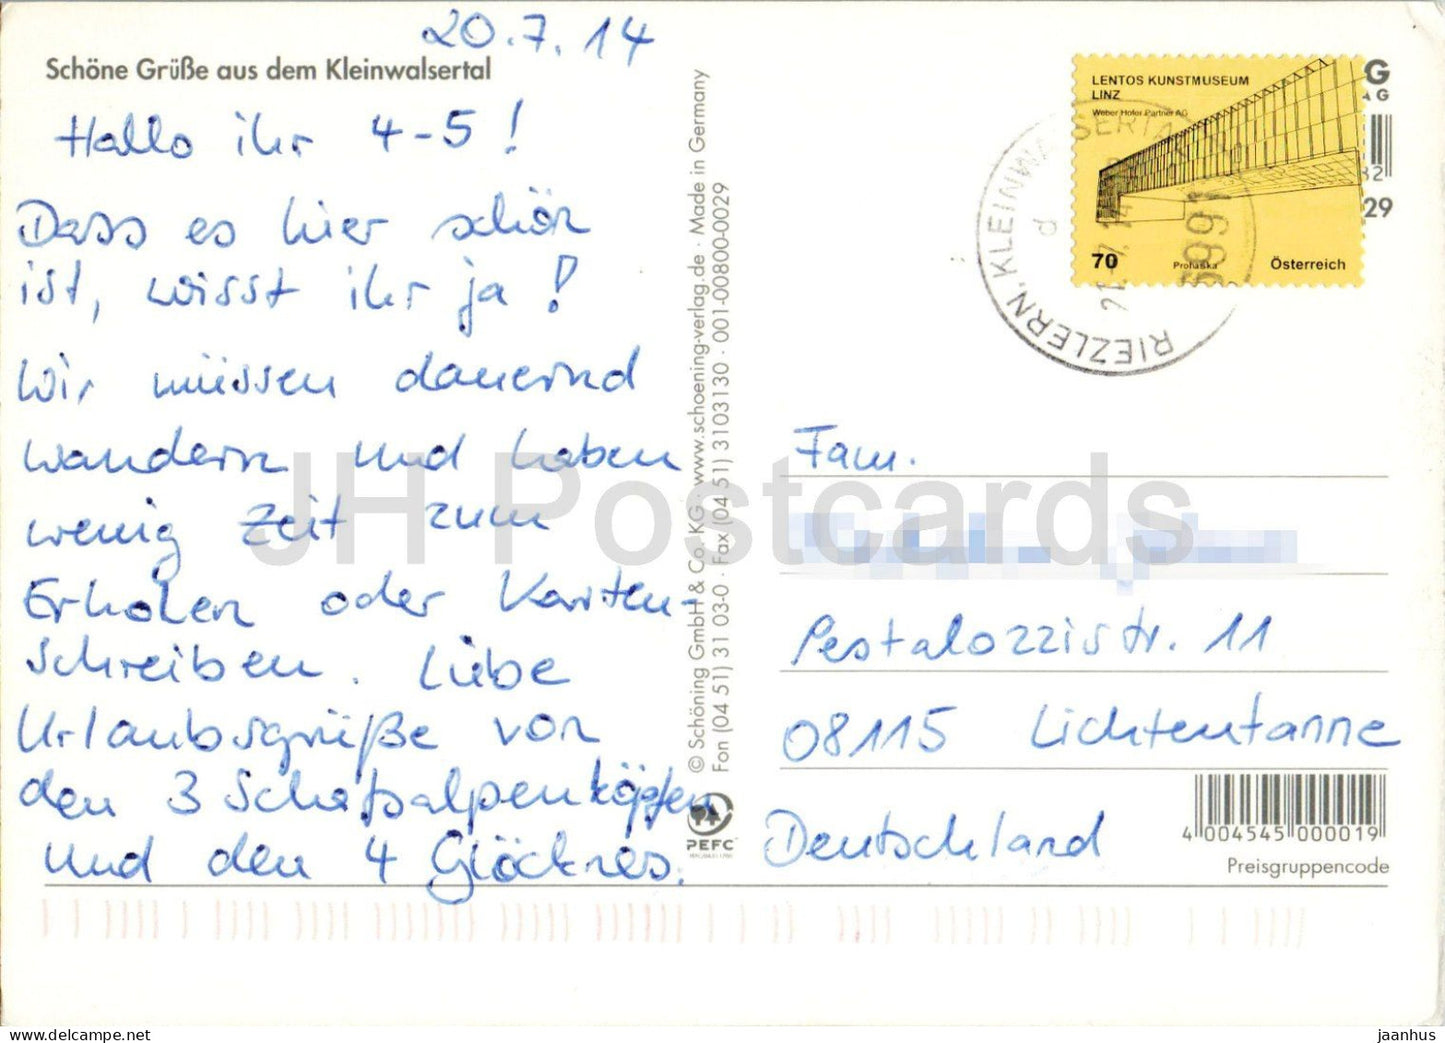 20.7.14
Schöne Grüße aus dem Kleinwalsertal
Hallo ihr 4-5!
Dass es hier schön
ist, wisst ihr ja!
Wir müssen dauernd
wandern und haben
wenig Zeit zum
Erholen oder Karten-
schreiben. Liebe
Urlaubsgrüße von
den 3 Schafsalpenköpfen
und den 4 Glöckners.
© Schöning GmbH & Co. KG · www.schoening-verlag.de · Made in Germany
Fon (04 51) 31 03-0 · Fax (04 51) 3103130 · 001-00800-0029
PEFC
LENTOS KUNSTMUSEUM
LINZ
Weber Hofer Partner AG
70
Prohaska
Österreich
G
AG
29
RIEZLERN, KLEINW SERTA
6991
d
Fam.
Pestalozzistr. 11
08115 Lichtentanne
Deutschland
4 004545 000019
Preisgruppencode
JH Postcards
www.delcampe.net
jaanhus